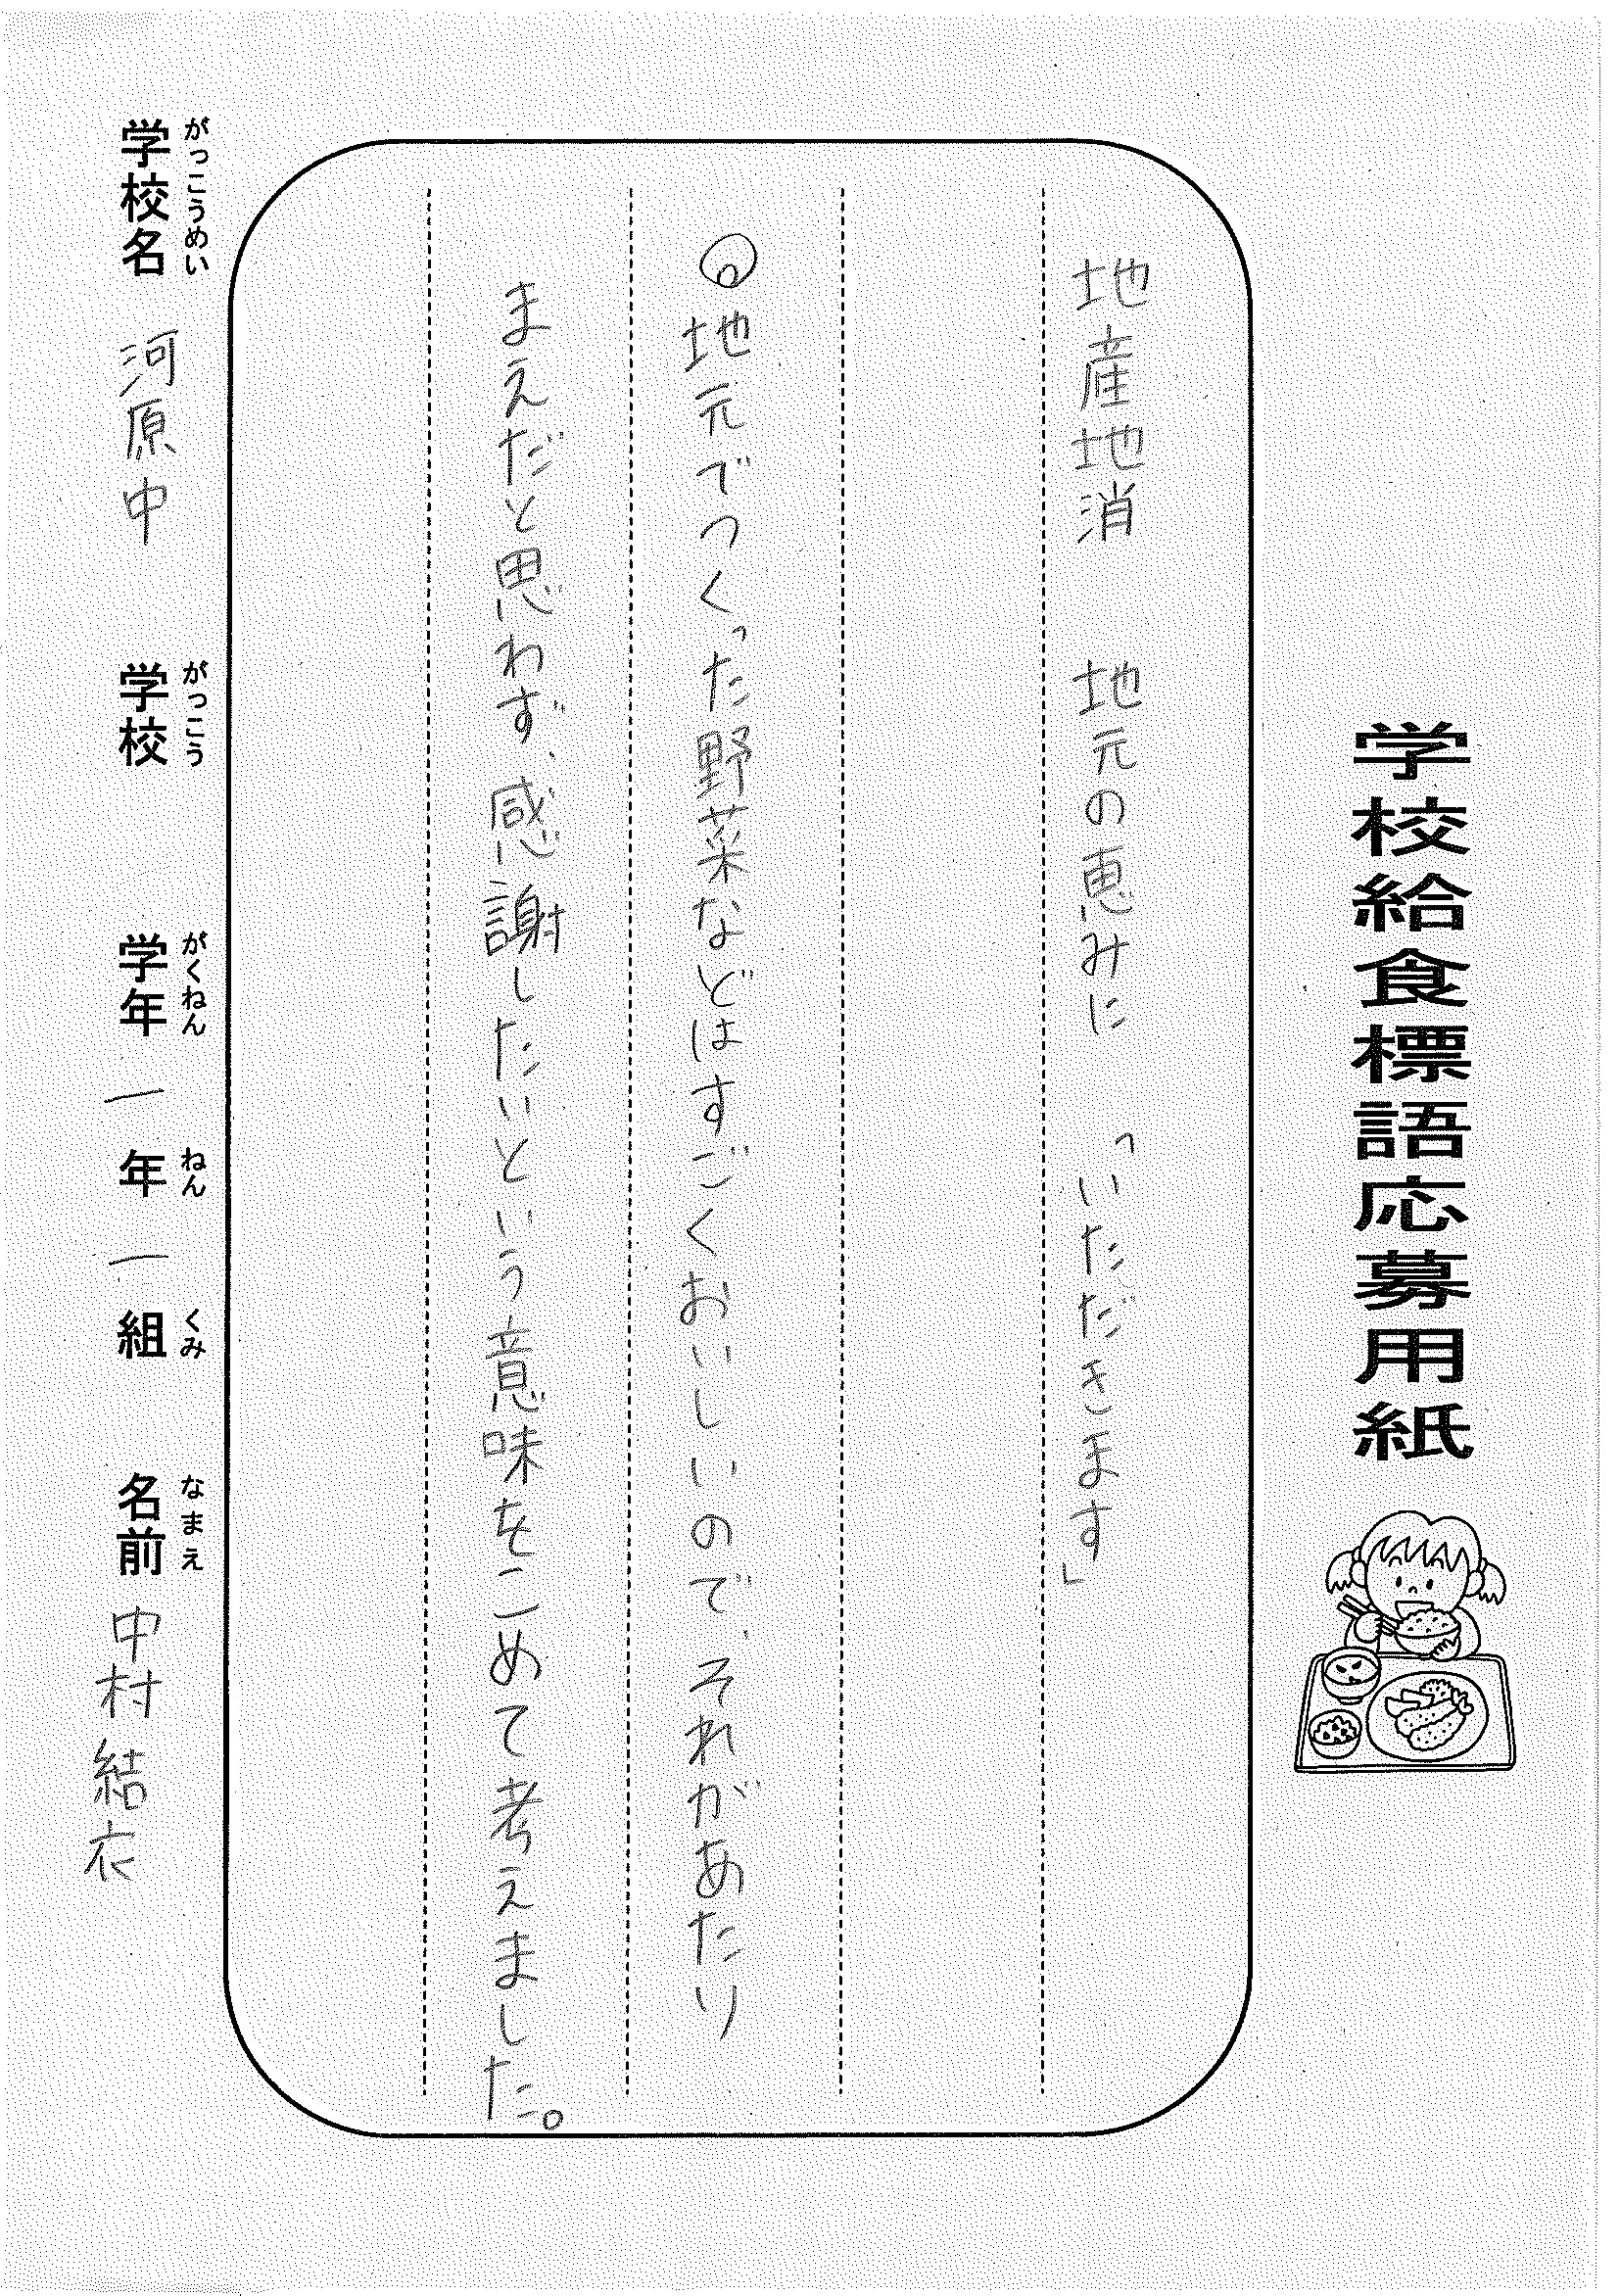 学校給食標語応募用紙
地産地消　地元の恵みに　「いただきます」
◎地元でつくった野菜などはすごくおいしいので、それがあたり
まえだと思わず、感謝したいという意味をこめて考えました。
がっこうめい　がっこう　がくねん　ねん　くみ　なまえ
学校名　河原中　学校　学年　一　年　一　組　名前　中村結衣